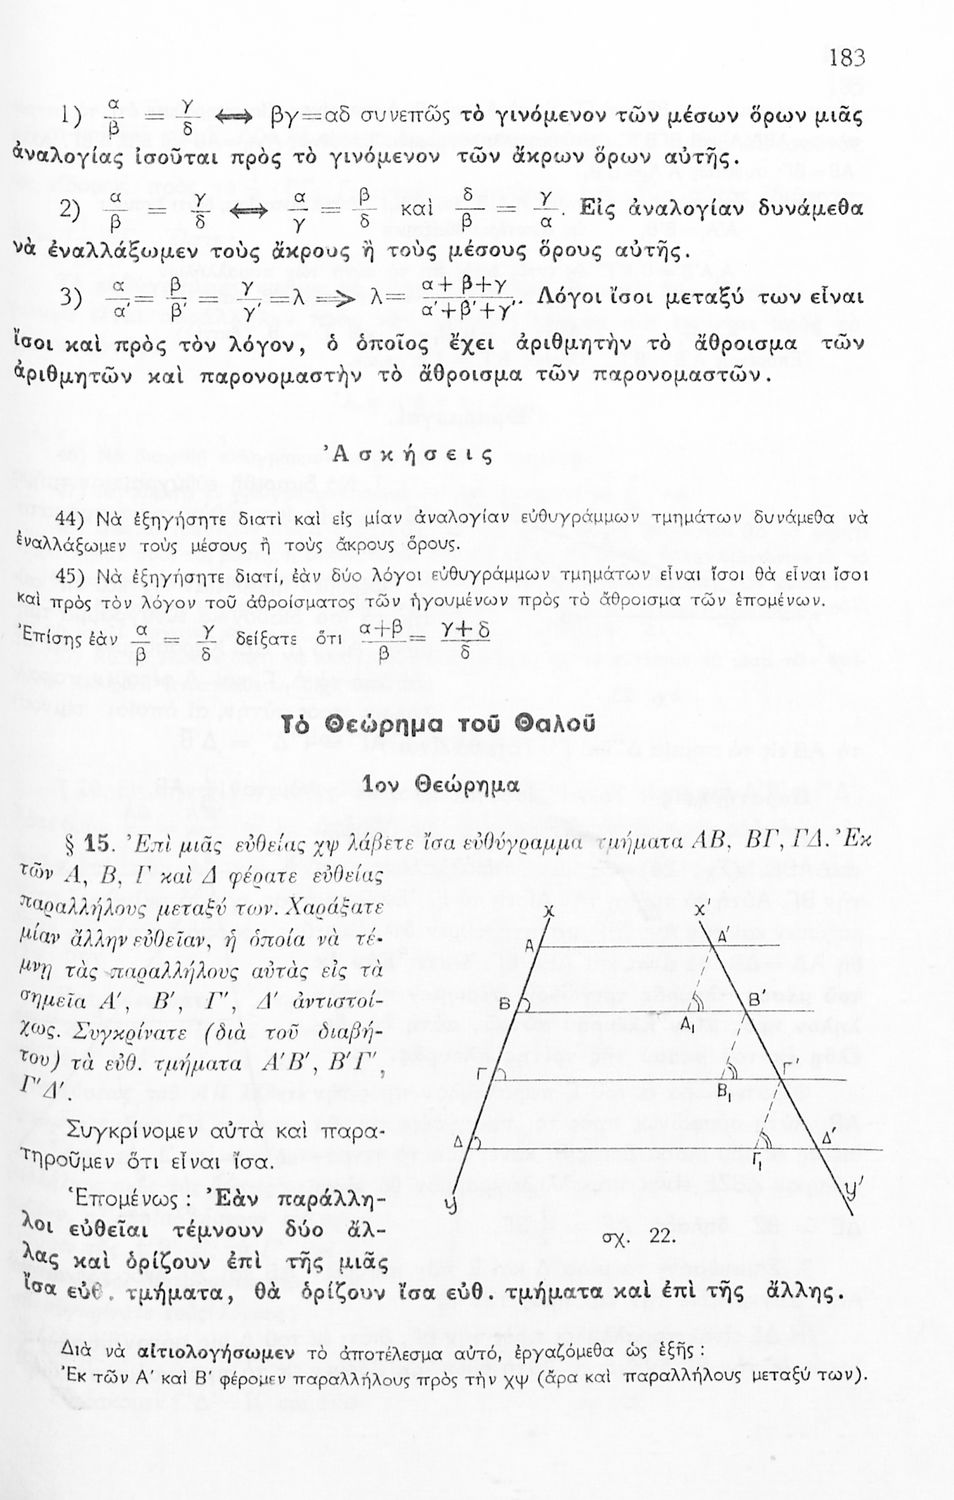 183
1) α/β = γ/δ ⟺ βγ=αδ συνεπῶς τὸ γινόμενον τῶν μέσων ὅρων μιᾶς
ἀναλογίας ἰσοῦται πρὸς τὸ γινόμενον τῶν ἄκρων ὅρων αὐτῆς.
2) α/β = γ/δ ⟺ α/γ = β/δ καὶ δ/β = γ/α. Εἰς ἀναλογίαν δυνάμεθα
νὰ ἐναλλάξωμεν τοὺς ἄκρους ἢ τοὺς μέσους ὅρους αὐτῆς.
3) α/α' = β/β' = γ/γ' =λ ⟹ λ= α+β+γ/α'+β'+γ'. Λόγοι ἴσοι μεταξύ των εἶναι
ἴσοι καὶ πρὸς τὸν λόγον, ὁ ὁποῖος ἔχει ἀριθμητὴν τὸ ἄθροισμα τῶν
ἀριθμητῶν καὶ παρονομαστὴν τὸ ἄθροισμα τῶν παρονομαστῶν.
Ἀσκήσεις
44) Νὰ ἐξηγήσητε διατὶ καὶ εἰς μίαν ἀναλογίαν εὐθυγράμμων τμημάτων δυνάμεθα νὰ
ἐναλλάξωμεν τοὺς μέσους ἢ τοὺς ἄκρους ὅρους.
45) Νὰ ἐξηγήσητε διατί, ἐὰν δύο λόγοι εὐθυγράμμων τμημάτων εἶναι ἴσοι θὰ εἶναι ἴσοι
καὶ πρὸς τὸν λόγον τοῦ ἀθροίσματος τῶν ἡγουμένων πρὸς τὸ ἄθροισμα τῶν ἑπομένων.
Ἐπίσης ἐὰν α/β = γ/δ δείξατε ὅτι α+β/β = γ+δ/δ
Τὸ Θεώρημα τοῦ Θαλοῦ
1ον Θεώρημα
§ 15. Ἐπὶ μιᾶς εὐθείας χψ λάβετε ἴσα εὐθύγραμμα τμήματα ΑΒ, ΒΓ, ΓΔ. Ἐκ
τῶν Α, Β, Γ καὶ Δ φέρατε εὐθείας
παραλλήλους μεταξύ των. Χαράξατε
μίαν ἄλλην εὐθεῖαν, ἡ ὁποία νὰ τέ-
μνῃ τὰς παραλλήλους αὐτὰς εἰς τὰ
σημεῖα Α', Β', Γ', Δ' ἀντιστοί-
χως. Συγκρίνατε (διὰ τοῦ διαβή-
του) τὰ εὐθ. τμήματα Α'Β', Β'Γ',
Γ'Δ'.
Συγκρίνομεν αὐτὰ καὶ παρα-
τηροῦμεν ὅτι εἶναι ἴσα.
Ἑπομένως : Ἐὰν παράλλη-
λοι εὐθεῖαι τέμνουν δύο ἄλ-
λας καὶ ὁρίζουν ἐπὶ τῆς μιᾶς
ἴσα εὐθ. τμήματα, θὰ ὁρίζουν ἴσα εὐθ. τμήματα καὶ ἐπὶ τῆς ἄλλης.
x x'
Α Α'
Β Β'
Α₁
Γ Γ'
Β₁
Δ Δ'
Γ₁
y y'
σχ. 22.
Διὰ νὰ αἰτιολογήσωμεν τὸ ἀποτέλεσμα αὐτό, ἐργαζόμεθα ὡς ἑξῆς :
Ἐκ τῶν Α' καὶ Β' φέρομεν παραλλήλους πρὸς τὴν χψ (ἄρα καὶ παραλλήλους μεταξύ των).